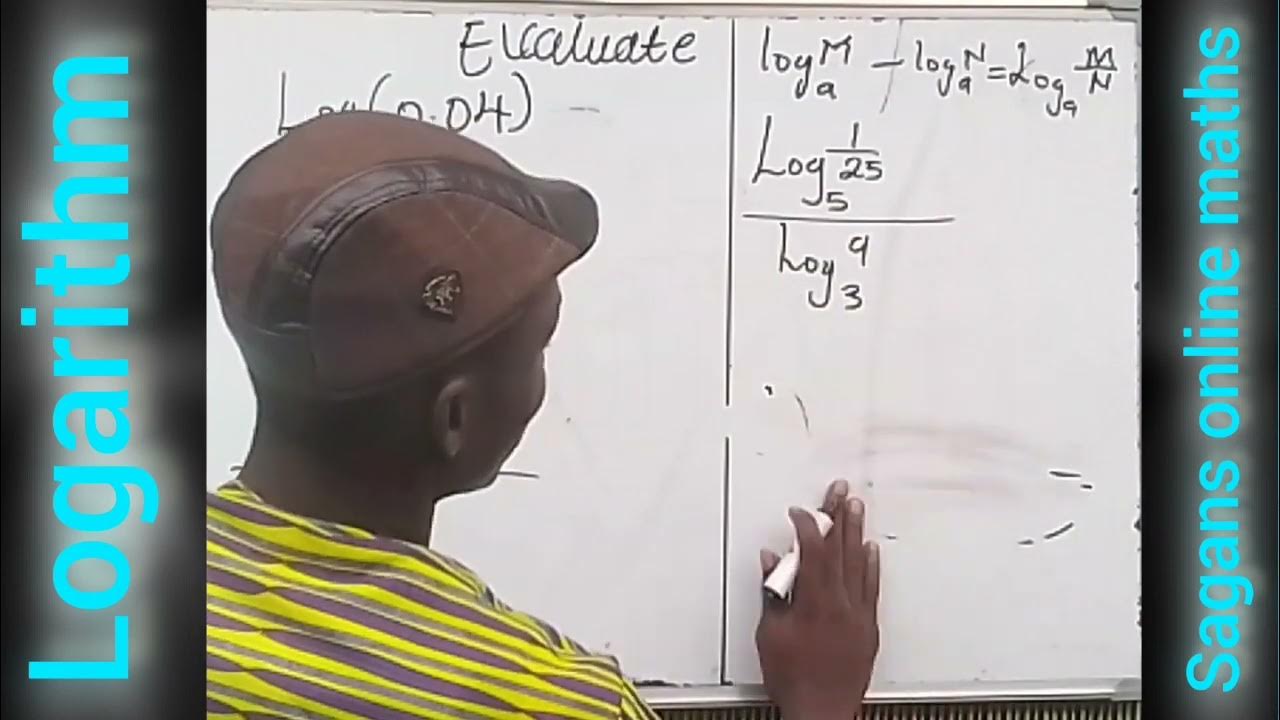 Logarithm
Evaluate
Log(0.04)
log_a M - log_a N = Log_a M/N
Log_5 1/25
Log_3 9
Sagans online maths